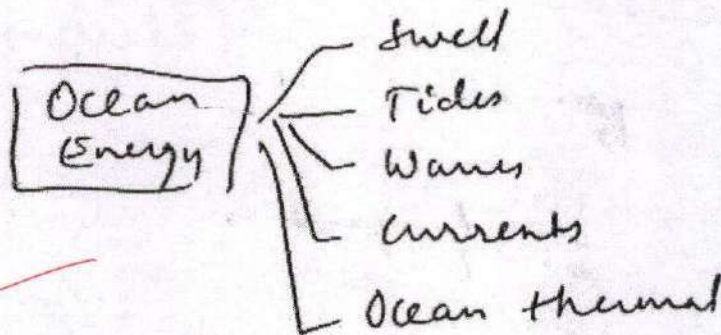 Ocean
Energy
Swell
Tides
Waves
Currents
Ocean thermal